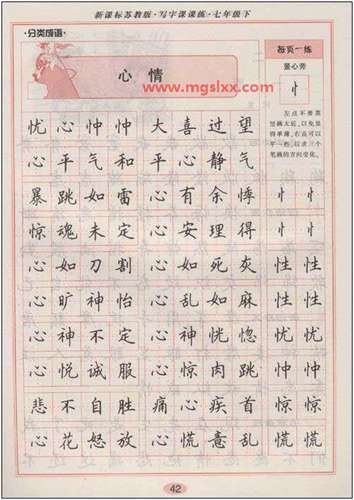 新课标苏教版·写字课课练·七年级下
·分类成语·
心情
www.mgslxx.com
每页一练
竖心旁
忄
左点不要离
竖画太远，以免显
得单薄，右点可以
平一些，以求三个
笔画的方向变化。
忧心忡忡 大喜过望
心平气和 平心静气
暴跳如雷 心有余悸 忄忄
惊魂未定 心安理得 忄忄
心如刀割 心如死灰 性性
心旷神怡 心乱如麻 怡怡
心神不定 心神恍惚 忧忧
心悦诚服 心惊肉跳 忡忡
悲不自胜 痛心疾首 惊惊
心花怒放 心慌意乱 慌慌
42